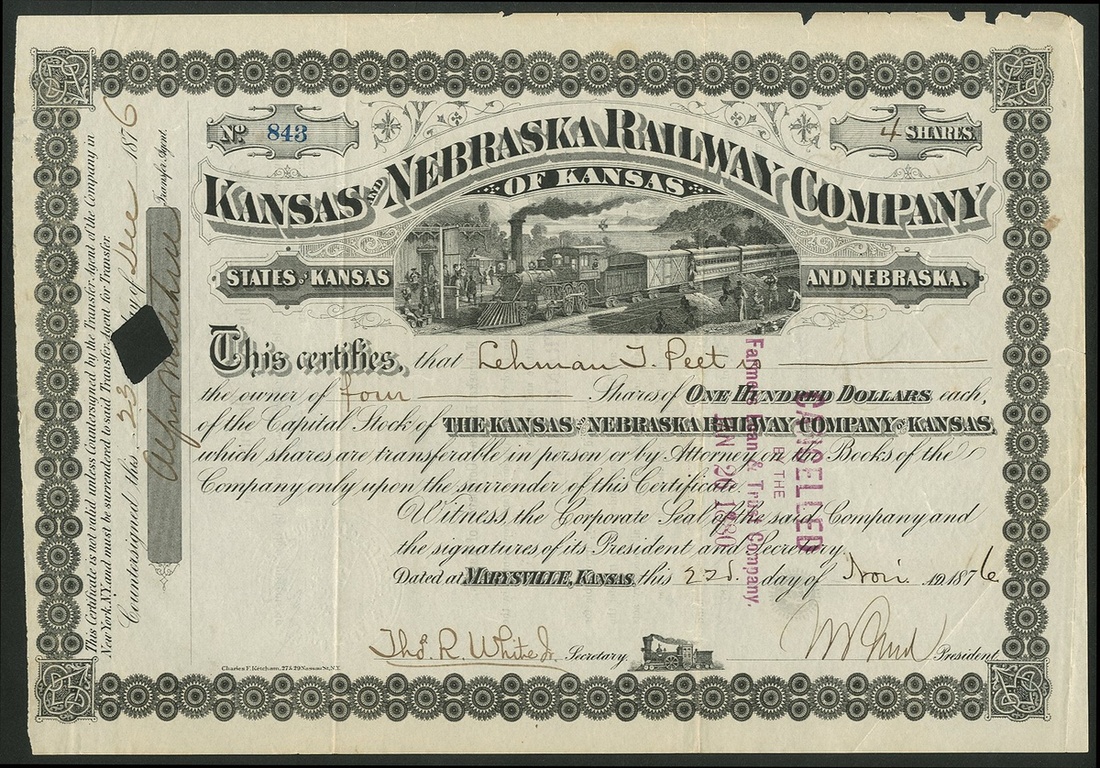 No. 843
4 SHARES.
KANSAS AND NEBRASKA RAILWAY COMPANY
OF KANSAS
STATES OF KANSAS
AND NEBRASKA.
This certifies, that Lehman T. Peet is
the owner of four Shares of ONE HUNDRED DOLLARS each,
of the Capital Stock of THE KANSAS AND NEBRASKA RAILWAY COMPANY OF KANSAS,
which shares are transferable in person or by Attorney on the Books of the
Company only upon the surrender of this Certificate.
Witness, the Corporate Seal of the said Company and
the signatures of its President and Secretary.
Dated at MARYSVILLE, KANSAS, this 22d. day of Nov AD 1876
Thos. R. White Jr. Secretary.
President.
Charles F. Ketcham, 27 & 29 Nassau St., N.Y.
This Certificate is not valid unless Countersigned by the Transfer Agent of the Company in
New York, N.Y. and must be surrendered to said Transfer Agent for Transfer.
Countersigned this 23 day of Dec 1876
Transfer Agent.
CANCELLED
BY THE
Farmers Loan & Trust Company.
JAN 26 1880